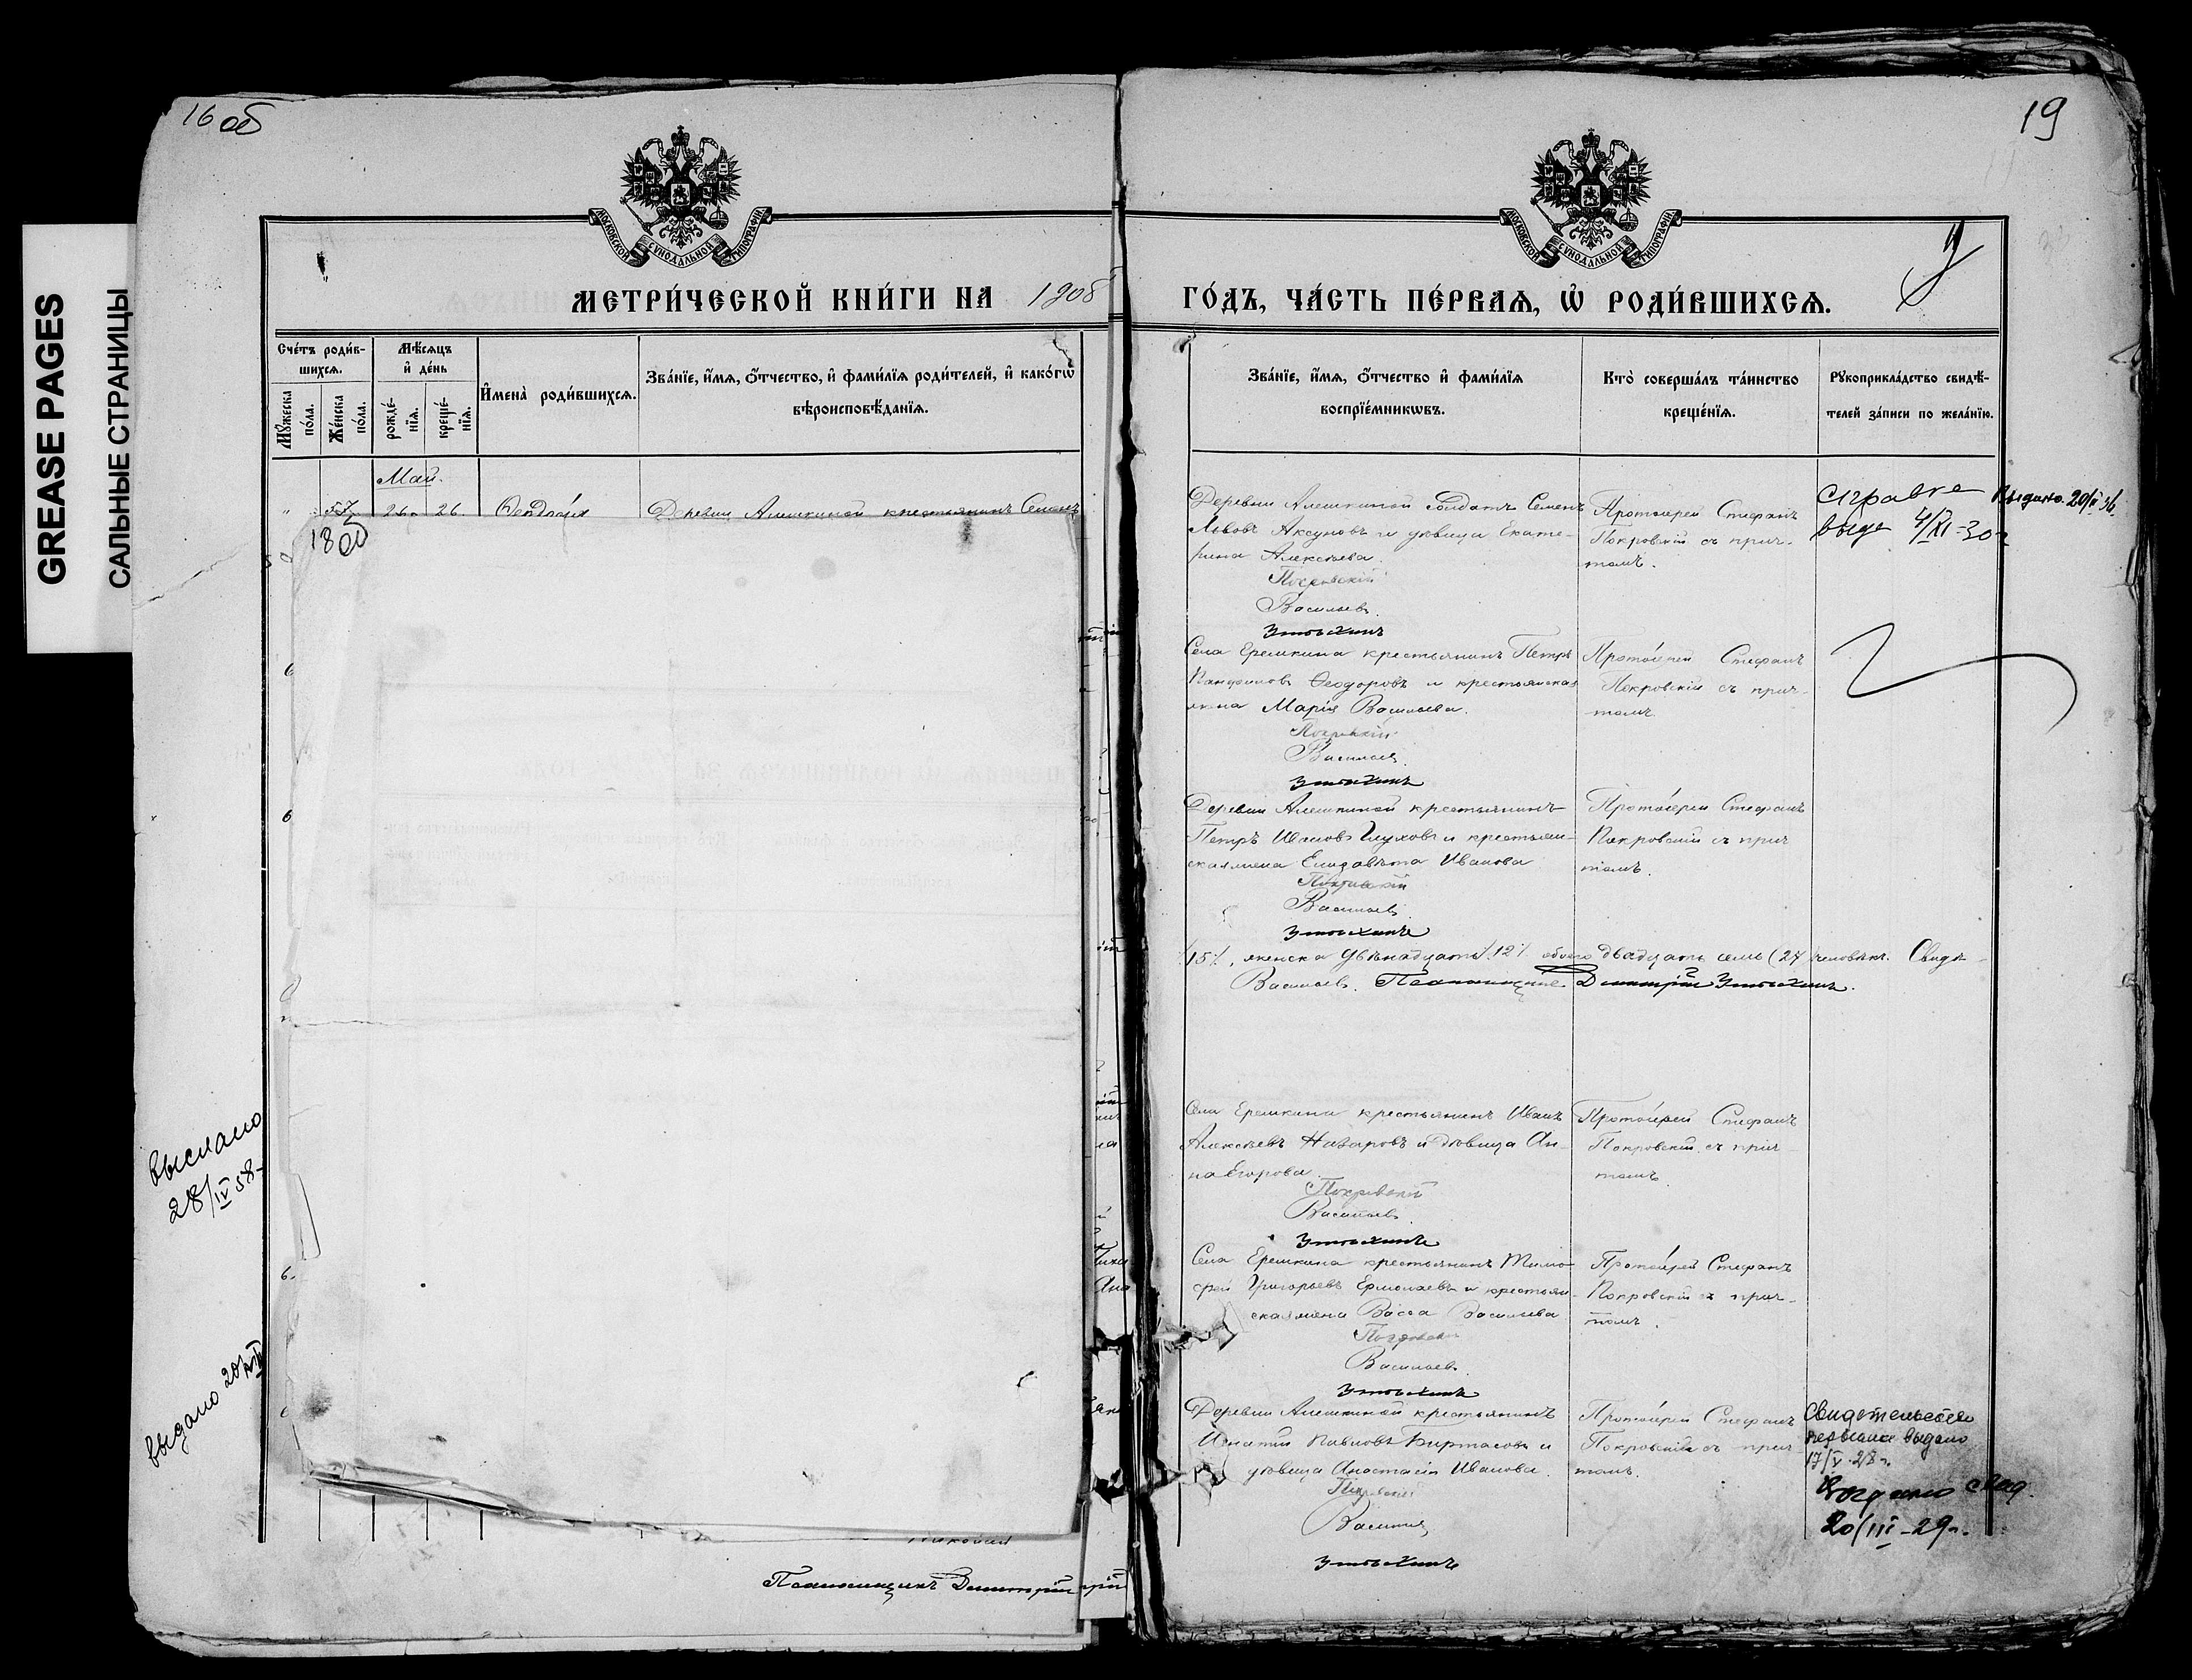 16 об
19
GREASE PAGES
САЛЬНЫЕ СТРАНИЦЫ
МОСКОВСКОЙ СУНОДАЛЬНОЙ ТИПОГРАФІИ
МОСКОВСКОЙ СУНОДАЛЬНОЙ ТИПОГРАФІИ
МЕТРИ́ЧЕСКОЙ КНИ́ГИ НА 1908
ГО́ДЪ, ЧА́СТЬ ПЕ́РВАѦ, Ѡ҆ РОДИ́ВШИХСѦ.
Сче́тъ роди́в-
шихсѧ.
Му́жеска по́ла.
Же́нска по́ла.
Мѣ́сѧцъ
и҆ де́нь
рожде́-
нїѧ.
креще́-
нїѧ.
И҆мена̀ роди́вшихсѧ.
Зва́нїе, и҆́мѧ, ѻ҆́тчество, и҆ фами́лїѧ роди́телей, и҆ како́гѡ
вѣроисповѣ́данїѧ.
Зва́нїе, и҆́мѧ, ѻ҆́тчество и҆ фами́лїѧ
воспрїе́мникѡвъ.
Кто̀ соверша́лъ та́инство
креще́нїѧ.
Рꙋкоприкла́дство свидѣ́-
телей за́писи по жела́нїю.
Май.
26. 26. Деревни Алешкиной крестьянинъ Семенъ
18 об
выслано
28/IV 58-
выдано
Деревни Алешкиной Солдатъ Семенъ
Львовъ Аксуновъ и дѣвица Екате-
рина Алексѣева.
Покровскій
Васильевъ.
Протоіерей Стефанъ
Покровскій съ прич-
томъ.
справка
выда 4/XI-30г
Выдано. 20/V 36.
Села Еремкина крестьянинъ Петръ
Панфиловъ Ѳеодоровъ и крестьянская
жена Марія Васильева.
Покровскій
Васильевъ.
Протоіерей Стефанъ
Покровскій съ прич-
томъ.
Деревни Алешкиной крестьянинъ
Петръ Ивановъ Глуховъ и крестьян-
ская жена Елизавета Иванова
Покровскій
Васильевъ.
Протоіерей Стефанъ
Покровскій съ прич
томъ.
15/., женска двѣнадцать /.12/. обоего двадцать семь (27) человѣкъ. Свидѣ-
Васильевъ. Псаломщикъ Димитрій
Села Еремкина крестьянинъ Иванъ
Алексѣевъ Назаровъ и дѣвица Ан-
на Егорова.
Покровскій
Васильевъ.
Протоіерей Стефанъ
Покровскій съ прич-
томъ.
Села Еремкина крестьянинъ Тимо-
фей Григорьевъ Ермолаевъ и крестьян-
ская жена Васса Васильева
Покровскій
Васильевъ.
Протоіерей Стефанъ
Покровскій съ прич-
томъ.
Деревни Алешкиной крестьянинъ
Игнатій Павловъ Бирталовъ и
дѣвица Анастасія Иванова.
Покровскій
Васильевъ
Протоіерей Стефанъ
Покровскій съ прич
томъ.
Свидетельство
выдано
17/V-28г.
Выдано свид.
20/III-29г.
Псаломщикъ Димитрій